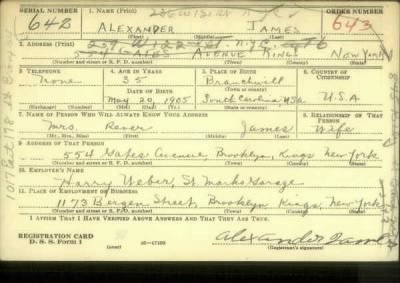 SERIAL NUMBER 1. NAME (Print) ORDER NUMBER
648 ALEXANDER JAMES 643
(First) (Middle) (Last)
2. ADDRESS (Print)
GATES AVENUE KINGS NEW YORK
(Number and street or R. F. D. number) (Town) (County) (State)
3. TELEPHONE 4. AGE IN YEARS 5. PLACE OF BIRTH 6. COUNTRY OF CITIZENSHIP
None 35 Branchville
DATE OF BIRTH (Town or county)
May 20, 1905 South Carolina USA U.S.A
(Exchange) (Number) (Mo.) (Day) (Yr.) (State or country)
7. NAME OF PERSON WHO WILL ALWAYS KNOW YOUR ADDRESS 8. RELATIONSHIP OF THAT PERSON
Mrs. James Wife
(Mr., Mrs., Miss) (First) (Middle) (Last)
9. ADDRESS OF THAT PERSON
554 Gates Avenue, Brooklyn, Kings, New York
(Number and street or R. F. D. number) (Town) (County) (State)
10. EMPLOYER'S NAME
Harry Weber, St Marks Garage
11. PLACE OF EMPLOYMENT OR BUSINESS
1173 Bergen Street, Brooklyn Kings, New York
(Number and street or R. F. D. number) (Town) (County) (State)
I AFFIRM THAT I HAVE VERIFIED ABOVE ANSWERS AND THAT THEY ARE TRUE.
REGISTRATION CARD
D. S. S. Form 1 (over) 16—17105 Alexander James
(Registrant's signature)